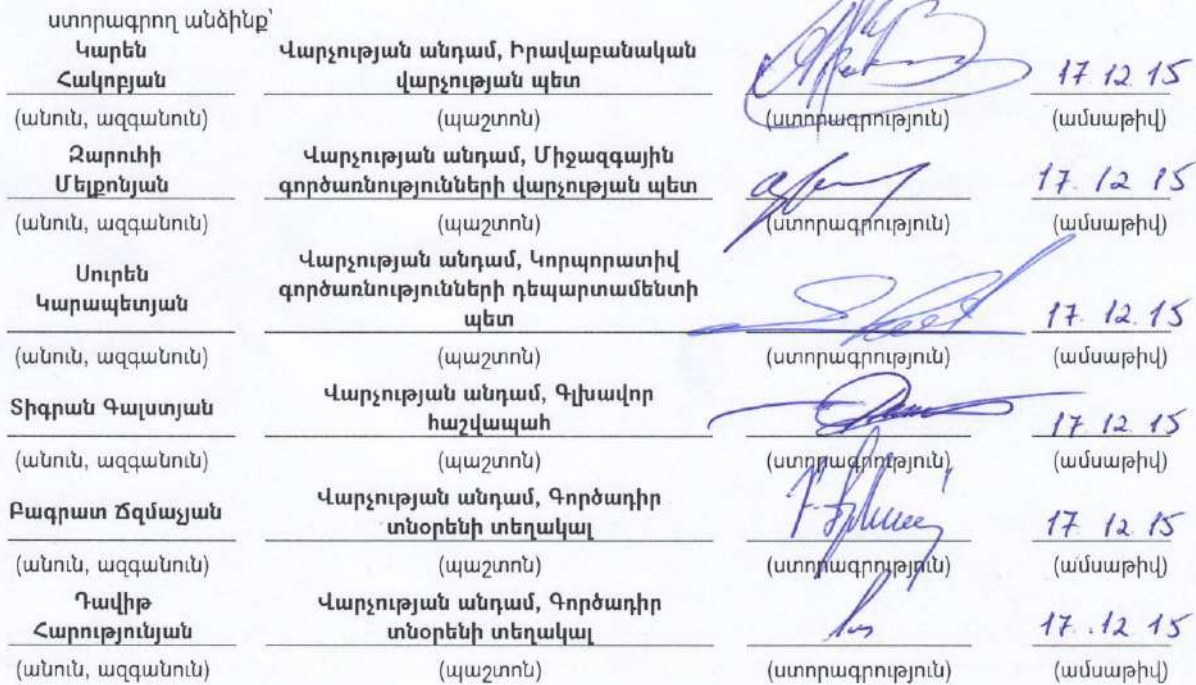 ստորագրող անձինք՝
Կարեն Վարչության անդամ, Իրավաբանական
Հակոբյան վարչության պետ 17 12 15
(անուն, ազգանուն) (պաշտոն) (ստորագրություն) (ամսաթիվ)
Զարուհի Վարչության անդամ, Միջազգային
Մելքոնյան գործառնությունների վարչության պետ 17. 12 15
(անուն, ազգանուն) (պաշտոն) (ստորագրություն) (ամսաթիվ)
Սուրեն Վարչության անդամ, Կորպորատիվ
Կարապետյան գործառնությունների դեպարտամենտի
պետ 17. 12. 15
(անուն, ազգանուն) (պաշտոն) (ստորագրություն) (ամսաթիվ)
Տիգրան Գալստյան Վարչության անդամ, Գլխավոր
հաշվապահ 17 12. 15
(անուն, ազգանուն) (պաշտոն) (ստորագրություն) (ամսաթիվ)
Բագրատ Ճզմաչյան Վարչության անդամ, Գործադիր
տնօրենի տեղակալ 17. 12 15
(անուն, ազգանուն) (պաշտոն) (ստորագրություն) (ամսաթիվ)
Դավիթ Վարչության անդամ, Գործադիր
Հարությունյան տնօրենի տեղակալ 17. .12 15
(անուն, ազգանուն) (պաշտոն) (ստորագրություն) (ամսաթիվ)